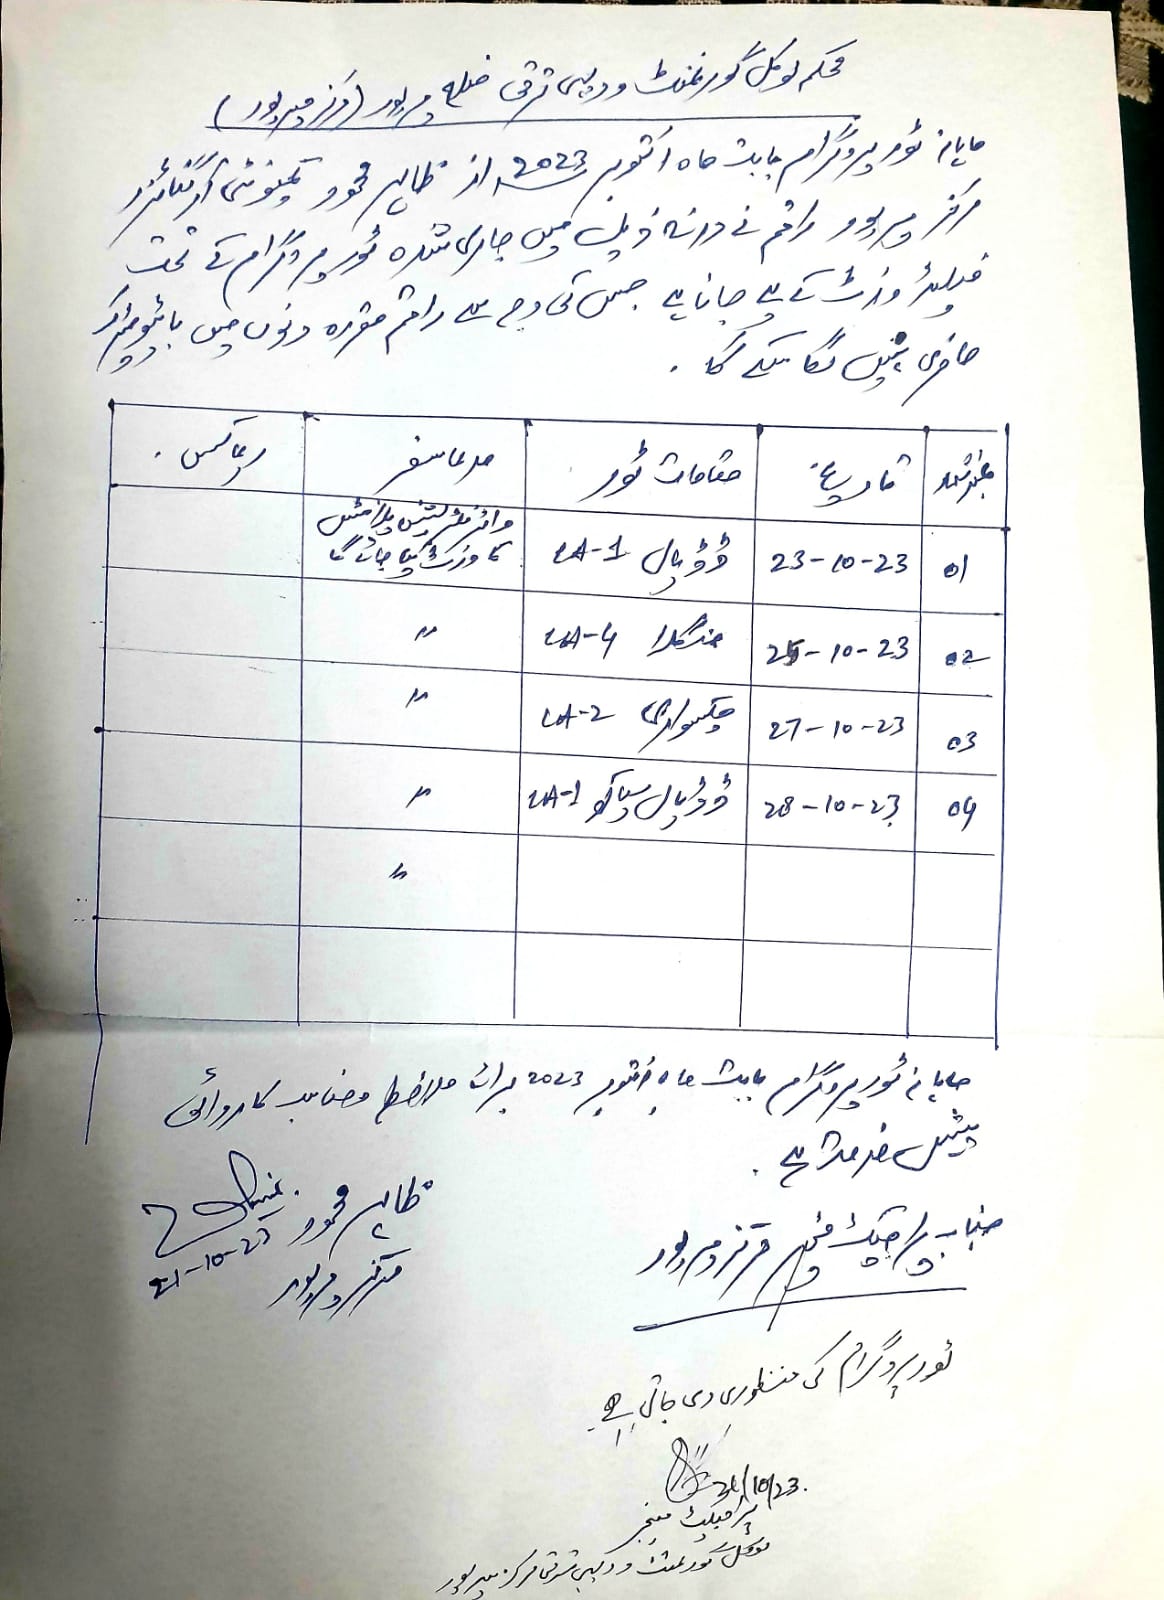 محکمہ لوکل گورنمنٹ و دیہی ترقی ضلع میرپور (مرکز میرپور)
ماہانہ ٹور پروگرام بابت ماہ اکتوبر 2023ء از طاہر محمود کمیونٹی آرگنائزر
مرکز میرپور راقم نے درجہ ذیل میں جاری شدہ ٹور پروگرام کے تحت
فیلڈ وزٹ کے لیے جانا ہے جس کی وجہ سے راقم مقررہ دنوں میں بائیو میٹرک
حاضری نہیں لگا سکے گا ۔
نمبر شمار تاریخ مقامات ٹور مدعا سفر ریمارکس ۔
01 23-10-23 ڈڈیال LA-1 واٹر فلٹریشن پلانٹس
کا وزٹ کیا جائے گا
02 25-10-23 منگلا LA-4 "
03 27-10-23 چکسواری LA-2 "
04 28-10-23 ڈڈیال سیاکھ LA-1 "
"
ماہانہ ٹور پروگرام بابت ماہ اکتوبر 2023 برائے ملاحظہ و مناسب کاروائی
پیش خدمت ہے ۔
طاہر محمود
21-10-23
مرکز میرپور
جناب پراجیکٹ منیجر مرکز میرپور
ٹور پروگرام کی منظوری دی جاتی ہے۔
21/10/23.
پراجیکٹ منیجر
لوکل گورنمنٹ و دیہی ترقی مرکز میرپور